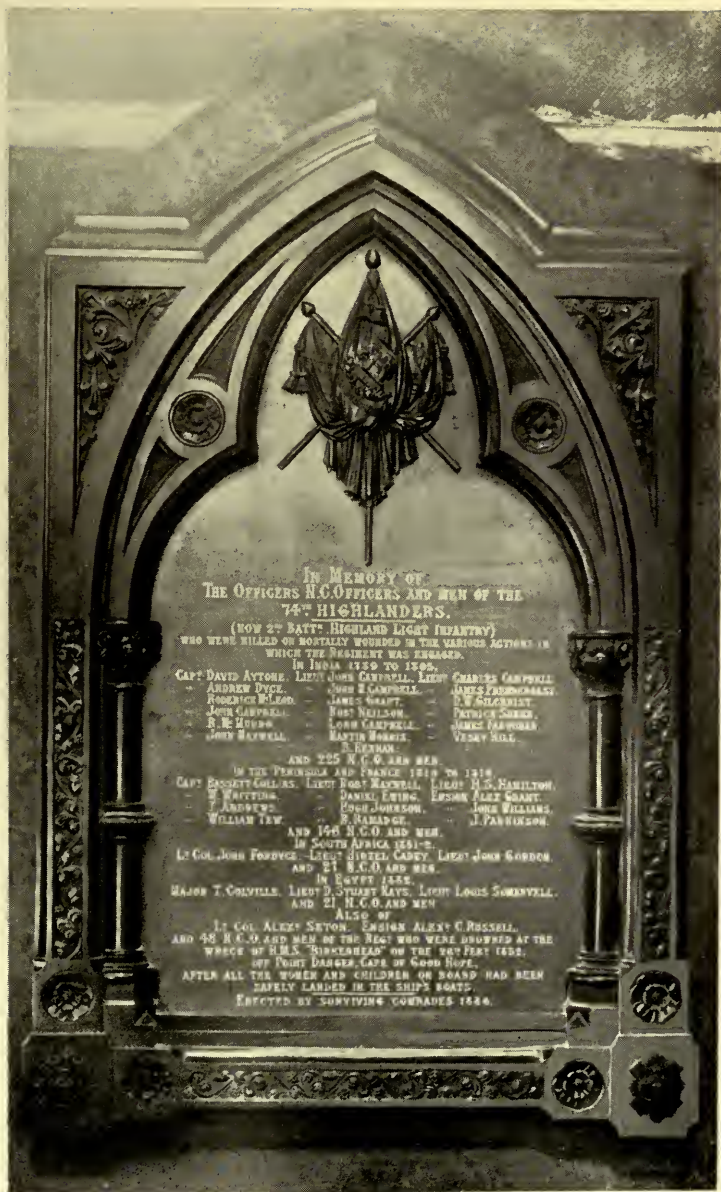 IN MEMORY OF
THE OFFICERS N.C. OFFICERS AND MEN OF THE
74TH HIGHLANDERS.
(NOW 2ND BATTN. HIGHLAND LIGHT INFANTRY)
WHO WERE KILLED OR MORTALLY WOUNDED IN THE VARIOUS ACTIONS IN
WHICH THE REGIMENT WAS ENGAGED.
IN INDIA 1789 TO 1805.
CAPT DAVID AYTONE. LIEUT JOHN CAMPBELL. LIEUT CHARLES CAMPBELL
" ANDREW DYCE. " JOHN M CAMPBELL. "
" RODERICK MCLEOD. " JAMES GRANT. " D.W. GILCHRIST.
" JOHN CAMPBELL. " ROBT NEILSON. "
" " LORN CAMPBELL. " JAMES FARQUHAR
" JOHN MAXWELL. " MARTIN MORRIS. " VESEY HILL.
B. KERNAN.
AND 225 N.C.O. AND MEN.
IN THE PENINSULA AND FRANCE 1810 TO 1814
CAPT BASSETT COLLINS. LIEUT ROBT MAXWELL. LIEUT H.S. HAMILTON.
" W. WHITTING. " DANIEL EWING. ENSIGN ALEX GRANT.
" T. ANDREWS. " HUGH JOHNSON. " JOHN WILLIAMS.
" WILLIAM TEW. " B. RAMADGE. " J. PARKINSON.
AND 146 N.C.O. AND MEN.
IN SOUTH AFRICA 1851-2.
LT COL JOHN FORDYCE. LIEUT CAREY. LIEUT JOHN GORDON.
AND 27 N.C.O. AND MEN.
IN EGYPT 1882.
MAJOR T. COLVILLE. LIEUT D. STUART KAYS. LIEUT LOUIS SOMERVELL.
AND 21 N.C.O. AND MEN
ALSO OF
LT COL ALEXR SETON. ENSIGN ALEXR C. RUSSELL.
AND 48 N.C.O. AND MEN OF THE REGT WHO WERE DROWNED AT THE
WRECK OF H.M.S. "BIRKENHEAD" ON THE 26TH FEBY 1852.
OFF POINT DANGER, CAPE OF GOOD HOPE.
AFTER ALL THE WOMEN AND CHILDREN ON BOARD HAD BEEN
SAFELY LANDED IN THE SHIP'S BOATS.
ERECTED BY SURVIVING COMRADES 1884.